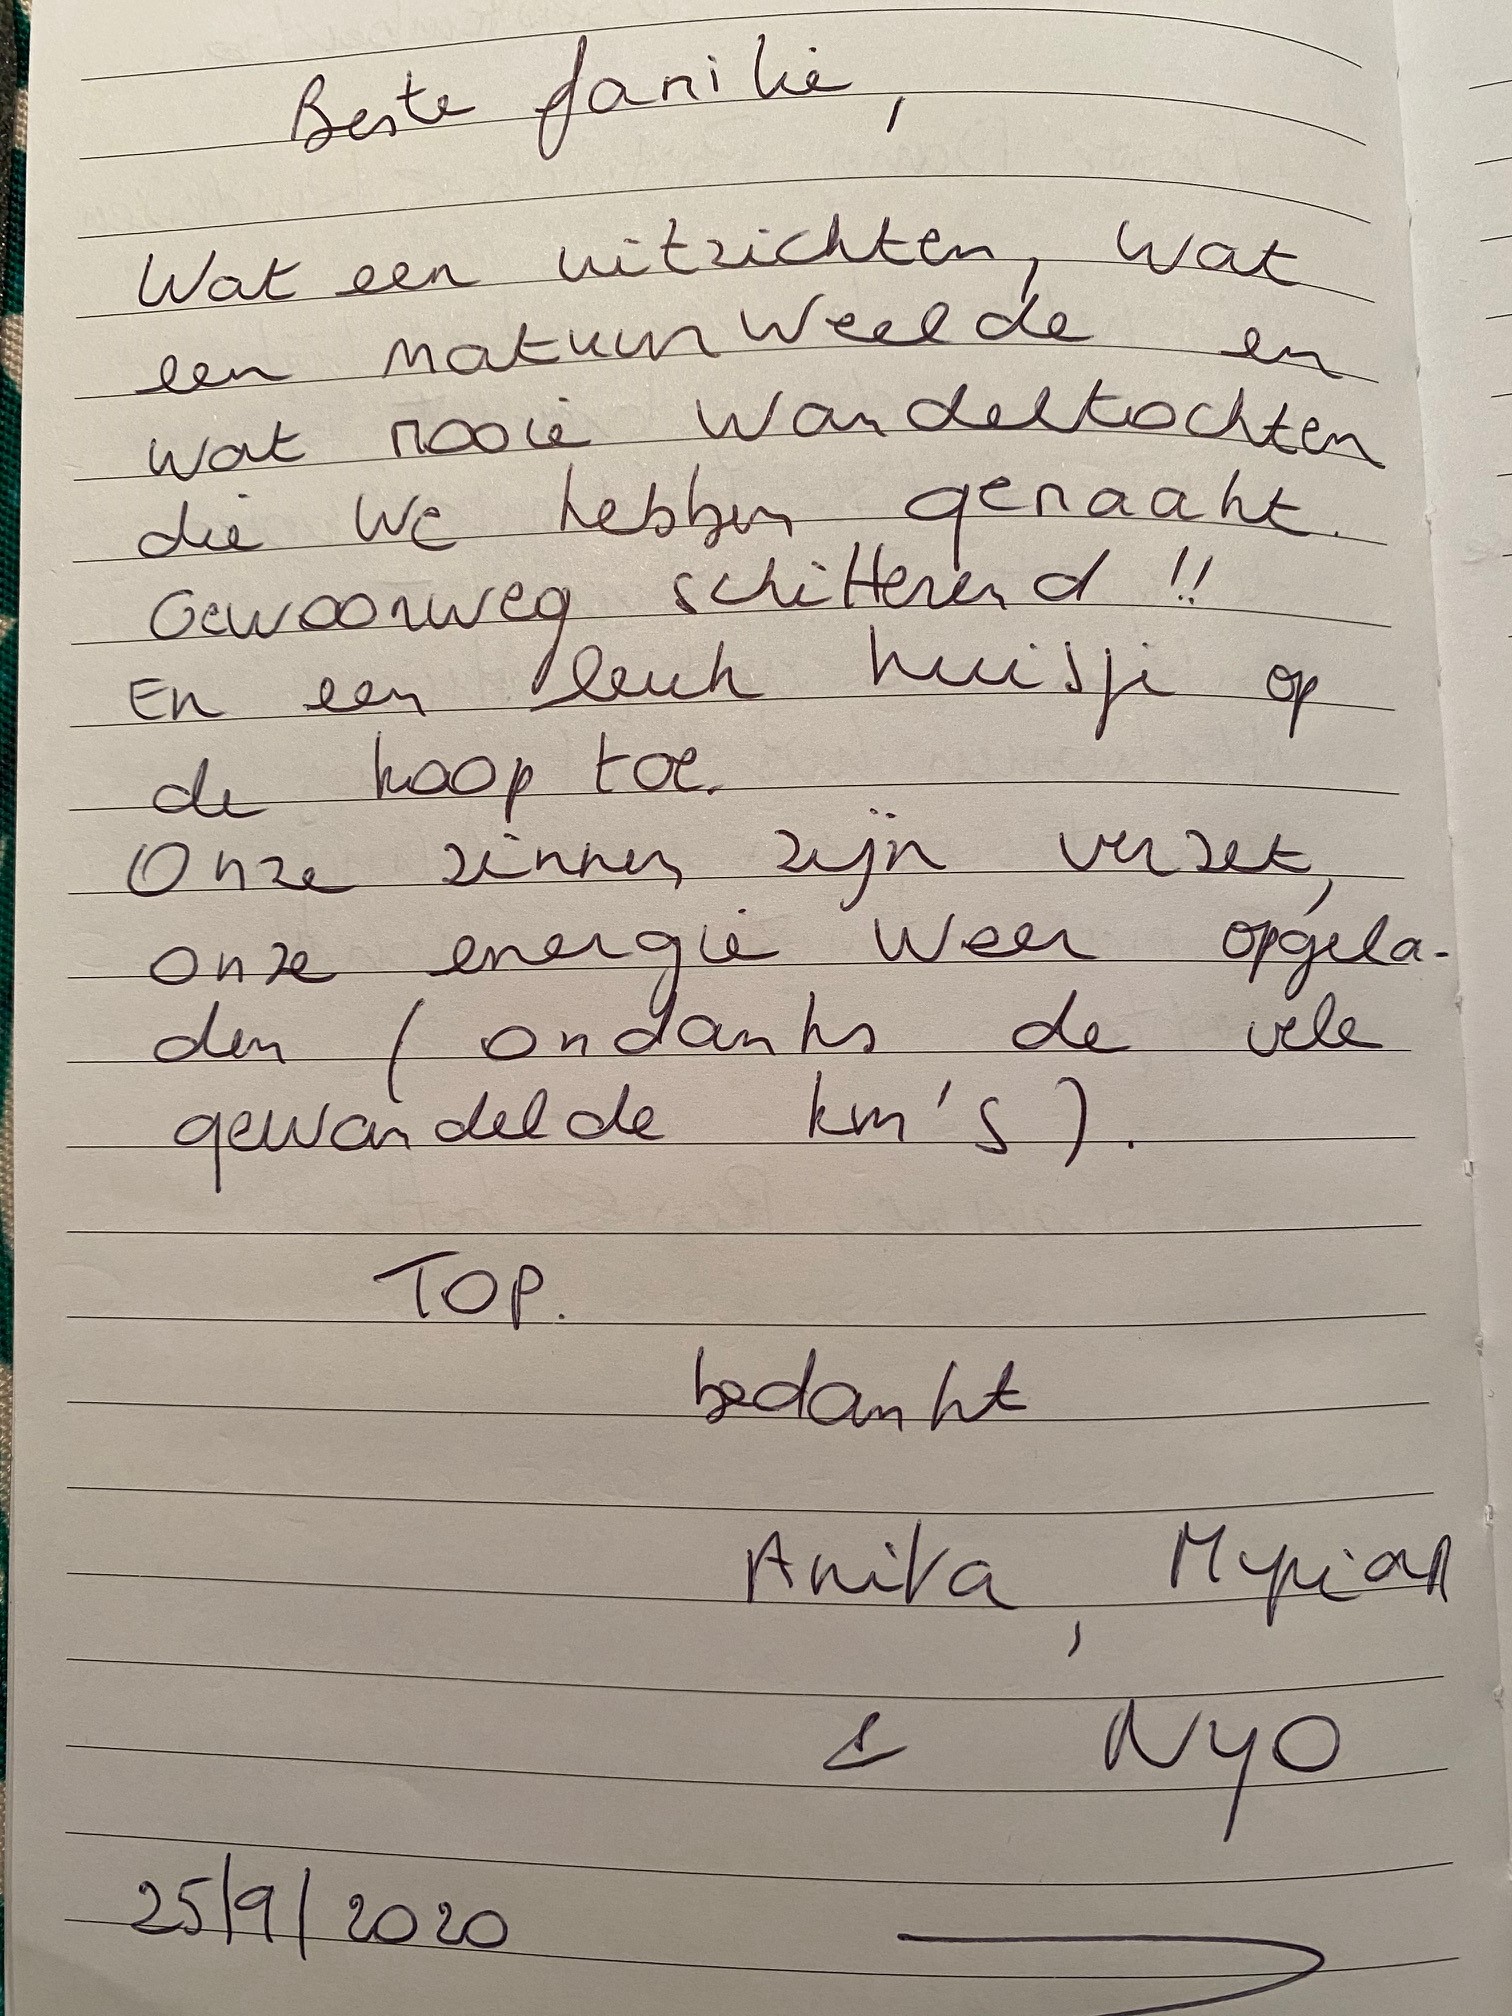 Beste familie,
Wat een uitzichten, wat
een natuurweelde en
wat mooie wandeltochten
die we hebben gemaakt.
Gewoonweg schitterend !!
En een leuk huisje op
de koop toe.
Onze zinnen zijn verzet,
onze energie weer opgela-
den (ondanks de vele
gewandelde km's).
TOP.
bedankt
Anita, Myriam
& NYO
25/9/2020